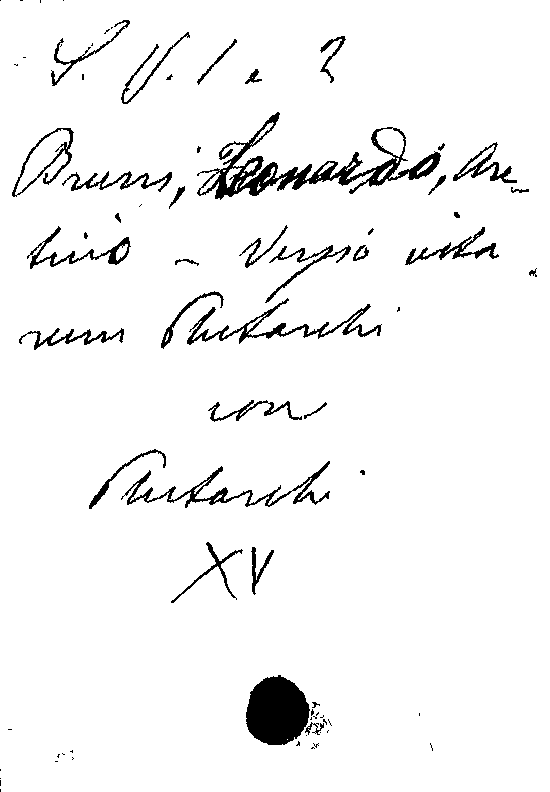 S. V. 1 e 2
Bruni, Leonardo, Are-
tino - Versio vita
rum Plutarchi
con
Plutarchi
XV